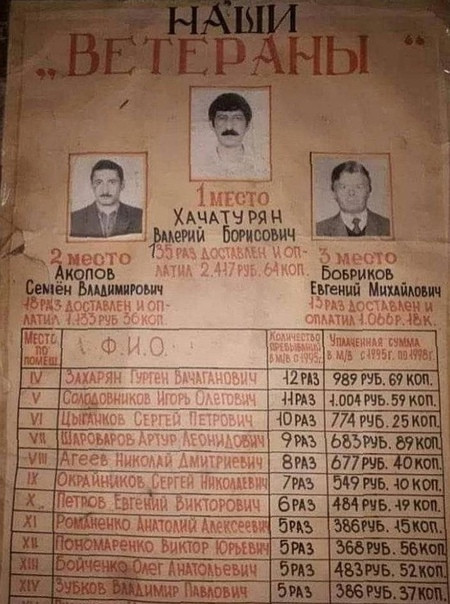 НАШИ
„ВЕТЕРАНЫ“
1 МЕСТО
ХАЧАТУРЯН
ВАЛЕРИЙ БОРИСОВИЧ
РАЗ ДОСТАВЛЕН И ОП-
ЛАТИЛ 2.417 РУБ. 64 КОП.
2 МЕСТО
АКОПОВ
СЕМЁН ВЛАДИМИРОВИЧ
18 РАЗ ДОСТАВЛЕН И ОП-
ЛАТИЛ 1.133 РУБ 56 КОП.
3 МЕСТО
БОБРИКОВ
ЕВГЕНИЙ МИХАЙЛОВИЧ
13 РАЗ ДОСТАВЛЕН И
ОПЛАТИЛ 1.066 Р. 18 К.
МЕСТО ПО ПОМЕЩ. Ф.И.О. КОЛИЧЕСТВО ПРЕБЫВАНИЙ В М/В С 1995г. УПЛАЧЕННАЯ СУММА В М/В С 1995г. ПО 1998г.
IV ЗАХАРЯН ГУРГЕН ВАЧАГАНОВИЧ 12 РАЗ 989 РУБ. 69 КОП.
V СОЛОДОВНИКОВ ИГОРЬ ОЛЕГОВИЧ 11 РАЗ 1.004 РУБ. 59 КОП.
VI ЦЫГАНКОВ СЕРГЕЙ ПЕТРОВИЧ 10 РАЗ 774 РУБ. 25 КОП.
VII ШАРОВАРОВ АРТУР ЛЕОНИДОВИЧ 9 РАЗ 683 РУБ. 89 КОП.
VIII АГЕЕВ НИКОЛАЙ ДМИТРИЕВИЧ 8 РАЗ 677 РУБ. 40 КОП.
IX ОКРАЙНИКОВ СЕРГЕЙ НИКОЛАЕВИЧ 7 РАЗ 549 РУБ. 10 КОП.
X ПЕТРОВ ЕВГЕНИЙ ВИКТОРОВИЧ 6 РАЗ 484 РУБ. 19 КОП.
XI РОМАНЕНКО АНАТОЛИЙ АЛЕКСЕЕВИЧ 5 РАЗ 386 РУБ. 15 КОП.
XII ПОНОМАРЕНКО ВИКТОР ЮРЬЕВИЧ 5 РАЗ 368 РУБ. 56 КОП.
XIII БОЙЧЕНКО ОЛЕГ АНАТОЛЬЕВИЧ 5 РАЗ 483 РУБ. 52 КОП.
XIV ЗУБКОВ ВЛАДИМИР ПАВЛОВИЧ 5 РАЗ 386 РУБ. 37 КОП.